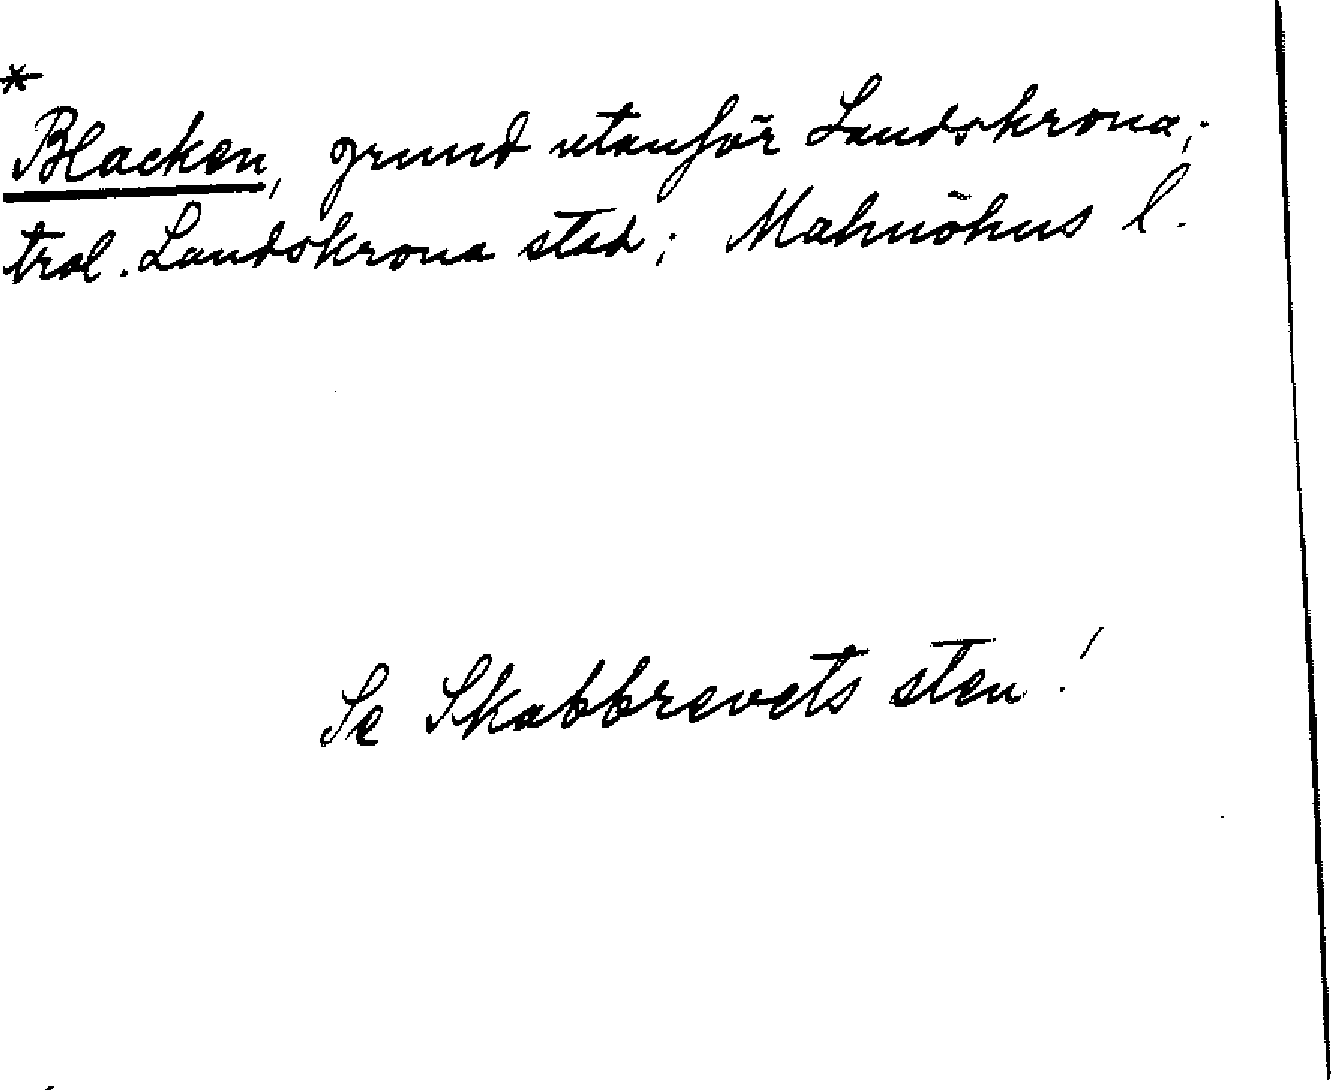 *
Blacken, grund utanför Landskrona;
trol. Landskrona stad; Malmöhus l.
Se Skabbrevets sten!